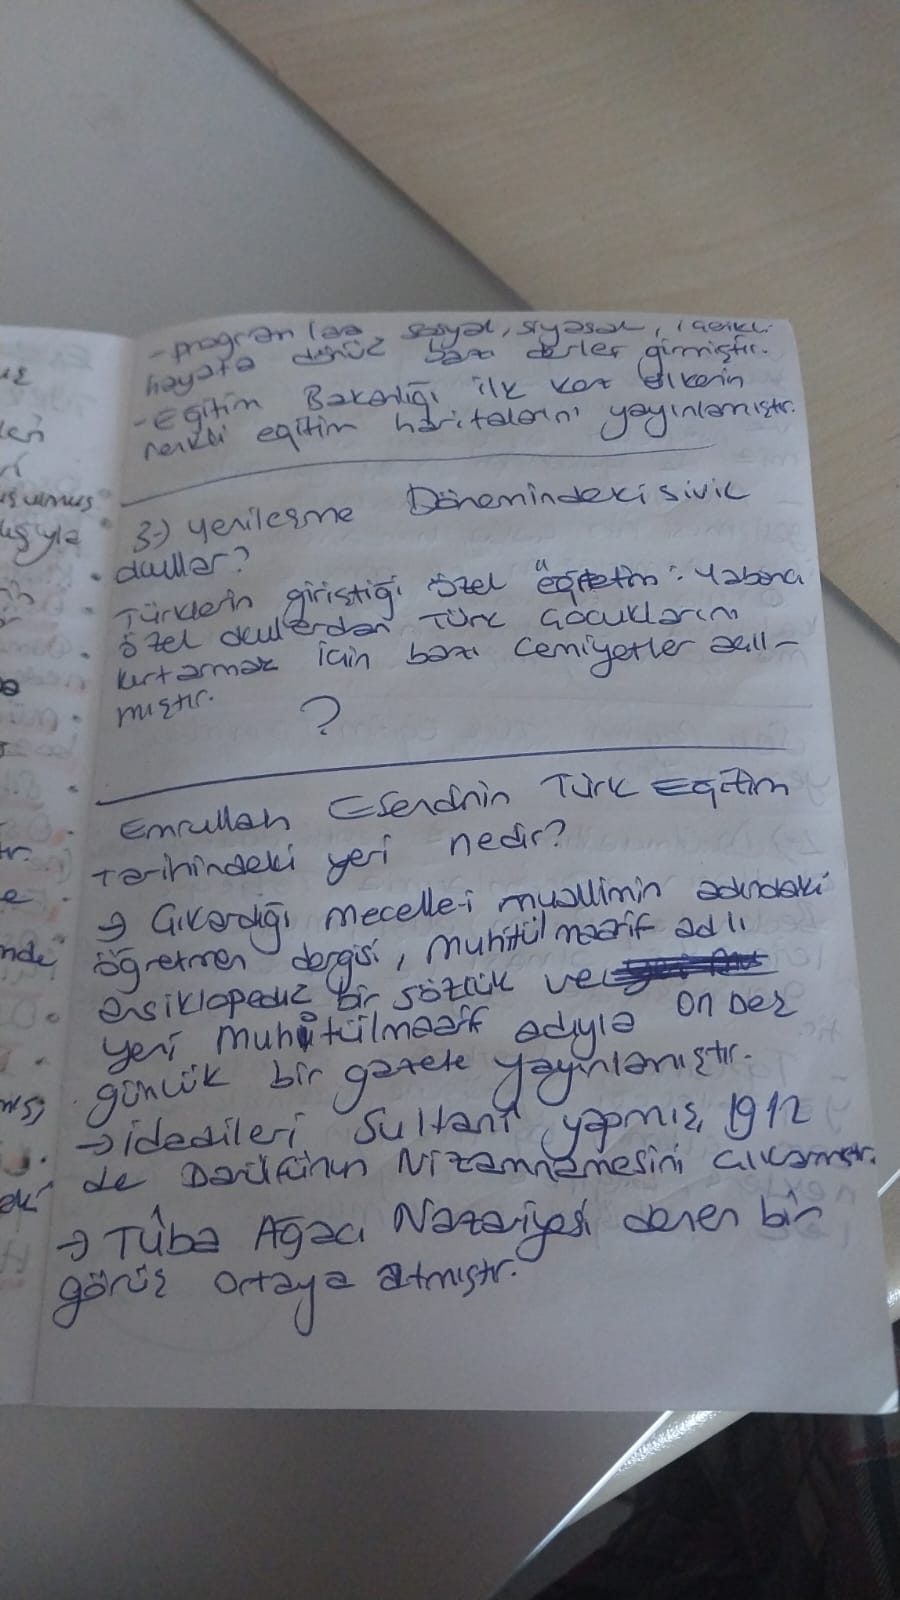 - programlara sosyal, siyasal, içerikli
hayata dönük bazı dersler girmiştir.
- Eğitim Bakanlığı ilk kez ülkenin
renkli eğitim haritalarını yayınlamıştır.
3-) Yenileşme Dönemindeki sivil
okullar?
Türklerin giriştiği özel öğretim: Yabancı
özel okullardan Türk çocuklarını
kurtarmak için bazı cemiyetler açıl-
mıştır.
?
Emrullah Efendinin Türk Eğitim
tarihindeki yeri nedir?
→ Çıkardığı mecelle-i muallimin adındaki
öğretmen dergisi, Muhitül maarif adlı
ansiklopedik bir sözlük ve
yeni Muhitülmaarif adıyla on beş
günlük bir gazete yayınlamıştır.
→ idadileri Sultani yapmış, 1912
de Darülfünun Nizamnamesini çıkarmıştır.
→ Tûba Ağacı Nazariyesi denen bir
görüş ortaya atmıştır.